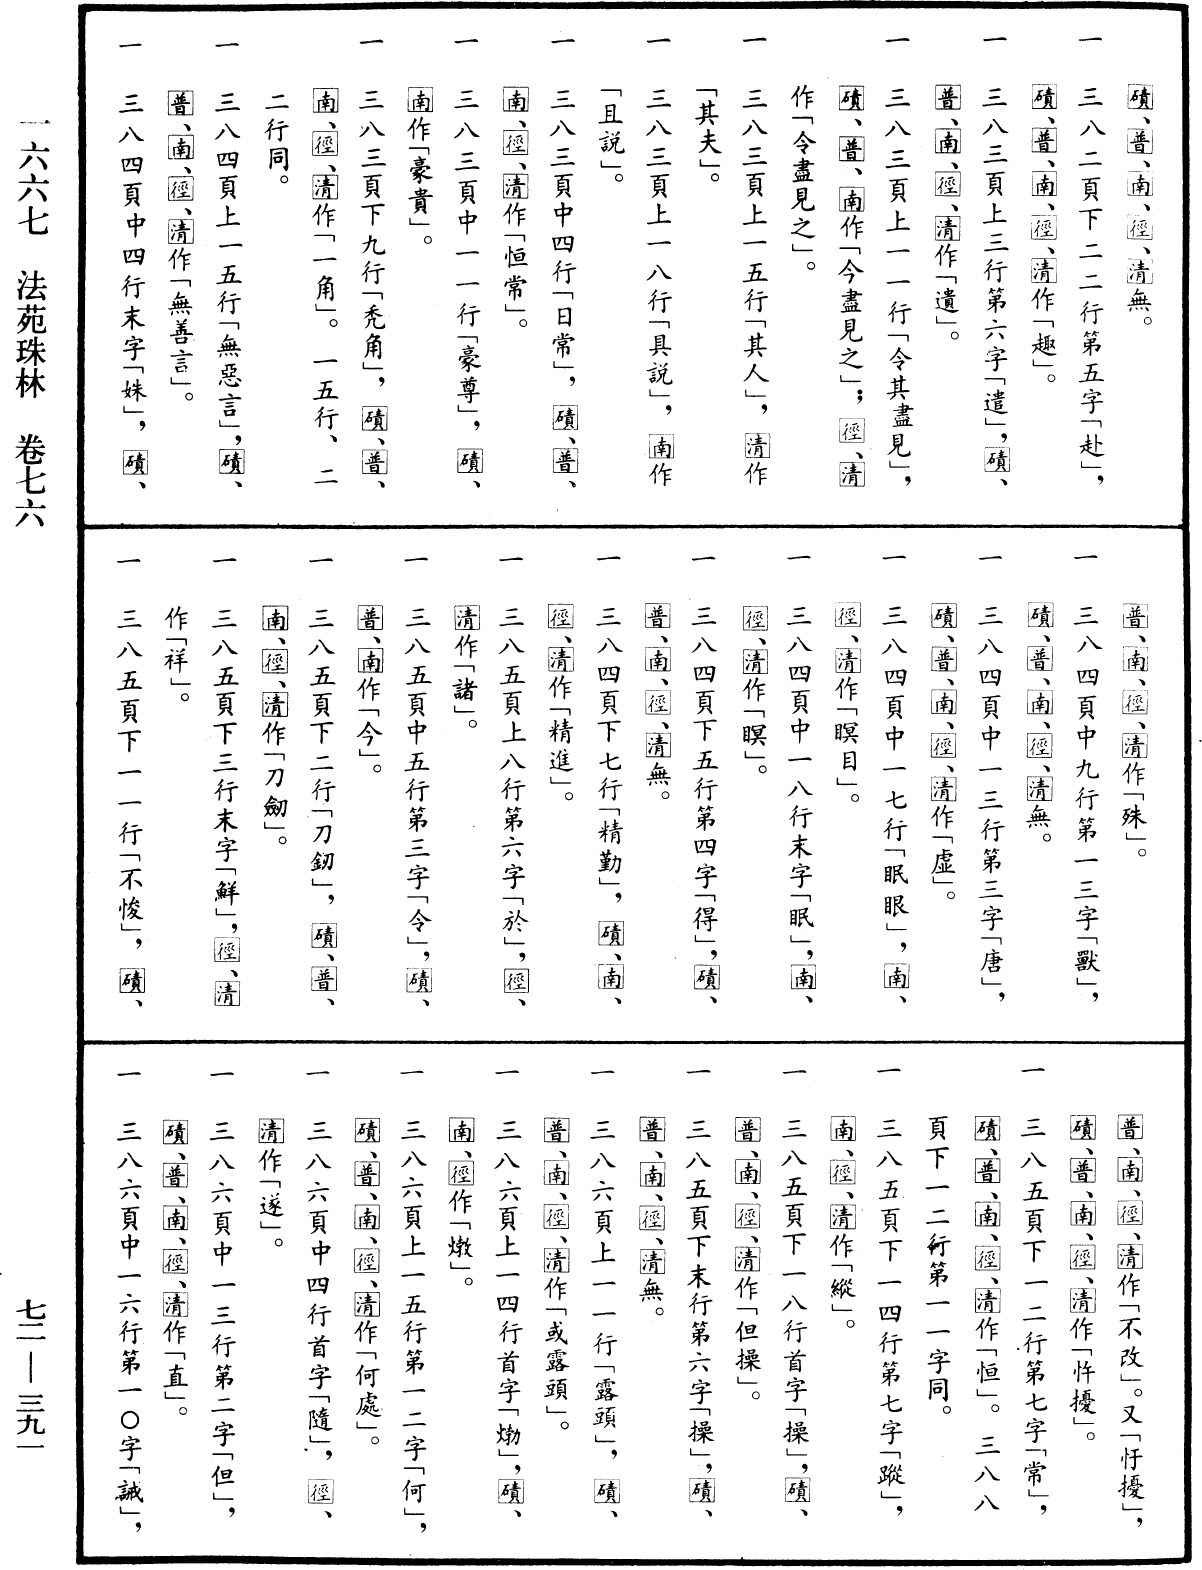 磧、普、南、徑、清無。
一　三八二頁下二二行第五字「赴」，
磧、普、南、徑、清作「趣」。
一　三八三頁上三行第六字「遣」，磧、
普、南、徑、清作「遺」。
一　三八三頁上一一行「令其盡見」，
磧、普、南作「今盡見之」；徑、清
作「令盡見之」。
一　三八三頁上一五行「其人」，清作
「其夫」。
一　三八三頁上一八行「具説」，南作
「且説」。
一　三八三頁中四行「日常」，磧、普、
南、徑、清作「恒常」。
一　三八三頁中一一行「豪尊」，磧、
南作「豪貴」。
一　三八三頁下九行「禿角」，磧、普、
南、徑、清作「一角」。一五行、二
二行同。
一　三八四頁上一五行「無惡言」，磧、
普、南、徑、清作「無善言」。
一　三八四頁中四行末字「姝」，磧、
普、南、徑、清作「殊」。
一　三八四頁中九行第一三字「獸」，
磧、普、南、徑、清無。
一　三八四頁中一三行第三字「唐」，
磧、普、南、徑、清作「虛」。
一　三八四頁中一七行「眠眼」，南、
徑、清作「瞑目」。
一　三八四頁中一八行末字「眠」，南、
徑、清作「瞑」。
一　三八四頁下五行第四字「得」，磧、
普、南、徑、清無。
一　三八四頁下七行「精勤」，磧、南、
徑、清作「精進」。
一　三八五頁上八行第六字「於」，徑、
清作「諸」。
一　三八五頁中五行第三字「令」，磧、
普、南作「今」。
一　三八五頁下二行「刀釼」，磧、普、
南、徑、清作「刀劒」。
一　三八五頁下三行末字「鮮」，徑、清
作「祥」。
一　三八五頁下一一行「不悛」，磧、
普、南、徑、清作「不改」。又「忓擾」，
磧、普、南、徑、清作「忤擾」。
一　三八五頁下一二行第七字「常」，
磧、普、南、徑、清作「恒」。三八八
頁下一二行第一一字同。
一　三八五頁下一四行第七字「蹤」，
南、徑、清作「縱」。
一　三八五頁下一八行首字「操」，磧、
普、南、徑、清作「但操」。
一　三八五頁下末行第六字「操」，磧、
普、南、徑、清無。
一　三八六頁上一一行「露頭」，磧、
普、南、徑、清作「或露頭」。
一　三八六頁上一四行首字「焩」，磧、
南、徑作「燉」。
一　三八六頁上一五行第一二字「何」，
磧、普、南、徑、清作「何處」。
一　三八六頁中四行首字「隨」，徑、
清作「遂」。
一　三八六頁中一三行第二字「但」，
磧、普、南、徑、清作「直」。
一　三八六頁中一六行第一〇字「誡」，
一六六七　法苑珠林　卷七六
七二—三九一